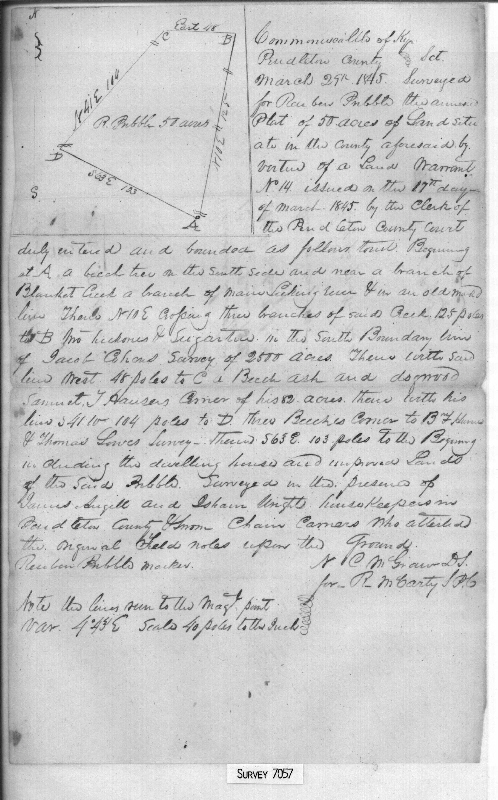 N
East 48
C
B
S41E 104
R. Pribble 50 acres
N10E 125
D
S63E 103
S
A
Commonwealth of Ky.
Pendleton County Sct.
March 29th 1845. Surveyed
for Reuben Pribble the annexed
Plat of 50 acres of Land situ
ate in the County aforesaid by
virtue of a Land Warrant
No 14 issued on the 17th day
of March 1845 by the Clerk of
the Pendleton County Court
duly entered and bounded as follows towit. Begining
at A. a beech tree on the South side and near a branch of
Blanket Creek a branch of main Licking River & in an old
line Thence N10E Crossing three branches of said Creek 125 poles
to B two hickories & Sugartree in the South Boundary line
of Jacob Cohens Survey of 2500 acres. Thence with said
line West 48 poles to C a Beech ash and dogwood
Samuel T Hausers Corner of his 82 acres. thence with his
line S41W 104 poles to D three Beeches Corner to B F
& Thomas Lowes Survey - Thence S63E 103 poles to the Begining
including the dwelling house and improved Lands
of the said Pribble. Surveyed in the presence of
James and Isham Wright housekeepers in
Pendleton County & Sworn Chain Carriers who attested
the original Field notes upon the Ground.
Reuben Pribble marker.
N. C McGraw D.S.
for R. McCarty S.P.C
Note the lines run to the Magt. point
Var. 4°43'E Scale 40 poles to the Inch
SURVEY 7057